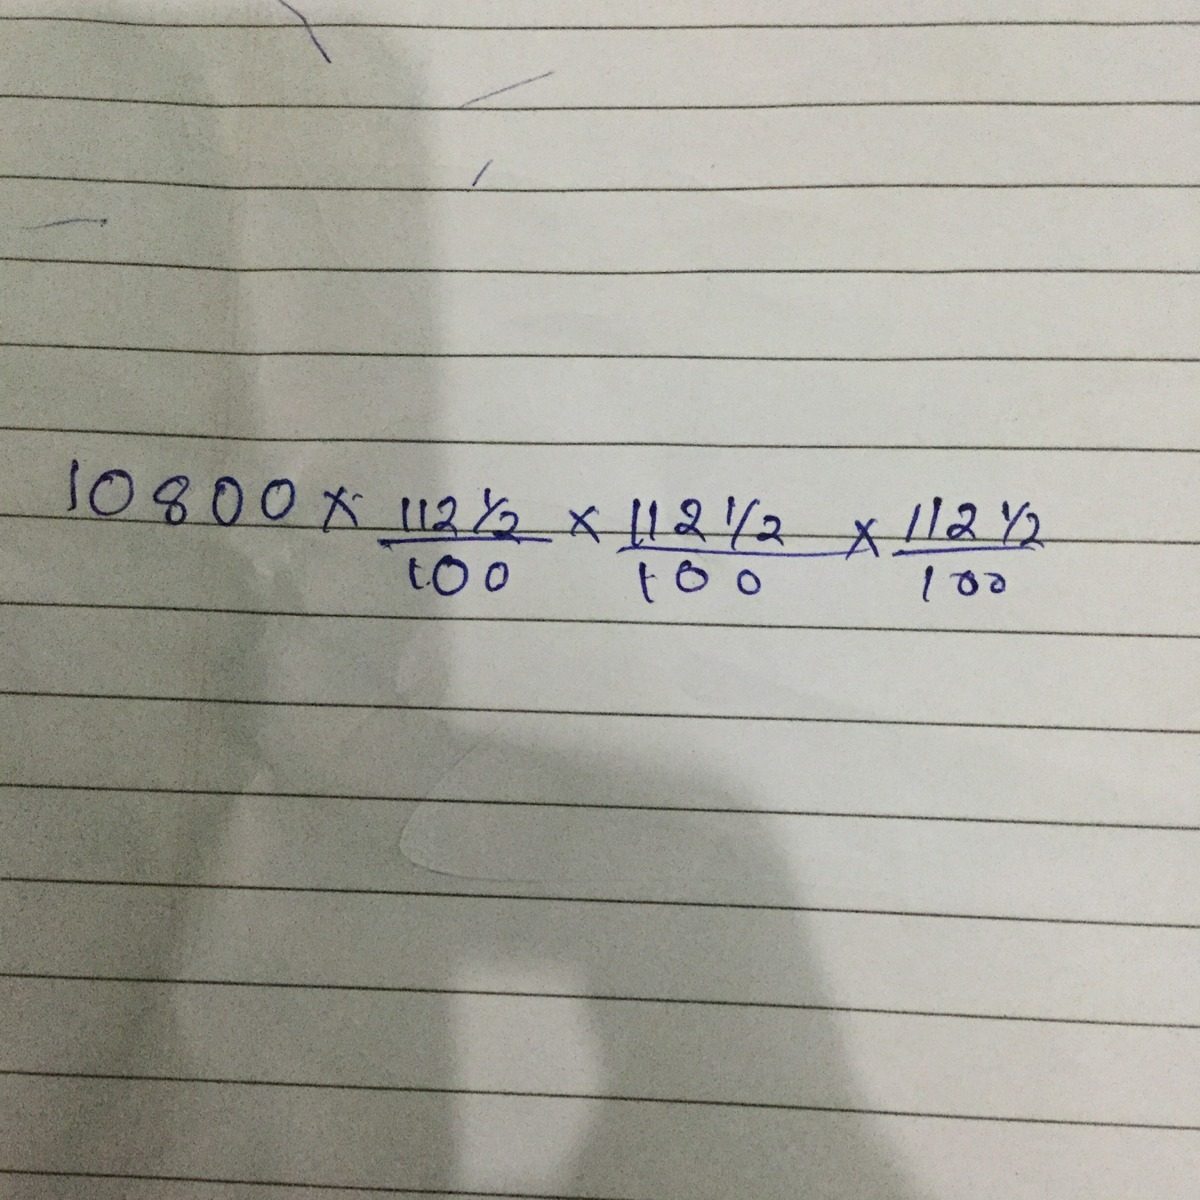 10800 × 112 1/2 / 100 × 112 1/2 / 100 × 112 1/2 / 100